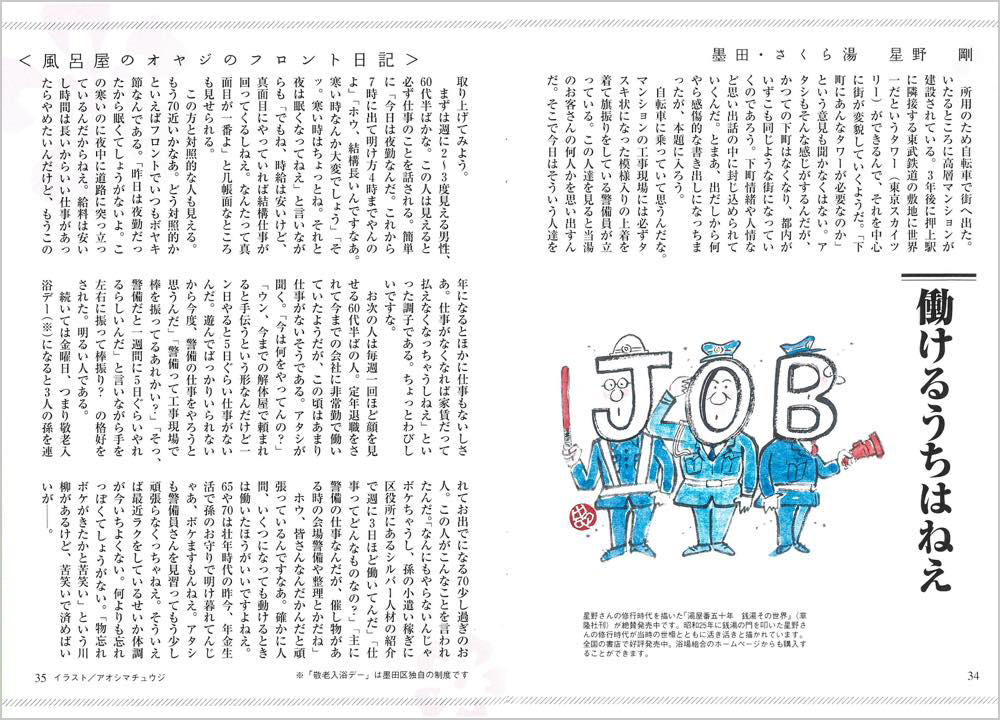 <風呂屋のオヤジのフロント日記>
墨田・さくら湯　星野　剛
働けるうちはねえ
　所用のため自転車で街へ出た。
いたるところに高層マンションが
建設されている。3年後に押上駅
に隣接する東武鉄道の敷地に世界
一だというタワー（東京スカイツ
リー）ができるんで、それを中心
に街が変貌していくようだ。「下
町にあんなタワーが必要なのか」
という意見も聞かなくはない。ア
タシもそんな感じがするんだが、
かつての下町はなくなり、都内が
いずこも同じような街になってい
くのであろう。下町情緒や人情な
ど思い出話の中に封じ込められて
いくんだ。とまあ、出だしから何
やら感傷的な書き出しになっちま
ったが、本題に入ろう。
　自転車に乗っていて思うんだな。
マンションの工事現場には必ずタ
スキ状になった模様入りの上着を
着て旗振りをしている警備員が立
っている。この人達を見ると当湯
のお客さんの何人かを思い出すん
だ。そこで今日はそういう人達を
JOB
星野さんの修行時代を描いた「湯屋番五十年　銭湯その世界」（草
隆社刊）が絶賛発売中です。昭和25年に銭湯の門を叩いた星野さ
んの修行時代が当時の世相とともに活き活きと描かれています。
全国の書店で好評発売中。浴場組合のホームページからも購入す
ることができます。
34
取り上げてみよう。
　まずは週に2・3度見える男性、
60代半ばかな。この人は見えると
必ず仕事のことを話される。簡単
に「今日は夜勤なんだ。これから
7時に出て明け方4時までやんの
よ」「ホウ、結構長いんですなあ。
寒い時なんか大変でしょう」「そ
ッ。寒い時はちょっとね。それと
夜は眠くなってねえ」と言いなが
らも「でもね、時給は安いけど、
真面目にやっていれば結構仕事が
回ってくるしねえ。なんたって真
面目が一番よ」と几帳面なところ
も見せられる。
　この方と対照的な人も見える。
もう70近いかなあ。どう対照的か
といえばフロントでいつもボヤキ
節なんである。「昨日は夜勤だっ
たから眠くてしょうがないよ。こ
の寒いのに夜中に道路に突っ立っ
ているんだからねえ。給料は安い
し時間は長いからいい仕事があっ
たらやめたいんだけど、もうこの
年になるとほかに仕事もないしさ
あ。仕事がなくなれば家賃だって
払えなくなっちゃうしねえ」とい
った調子である。ちょっとわびし
いですな。
　お次の人は毎週一回ほど顔を見
せる60代半ばの人。定年退職をさ
れて今までの会社に非常勤で働い
ていたようだが、この頃はあまり
仕事がないそうである。アタシが
聞く。「今は何をやってんの？」
「ウン、今までの解体屋で頼まれ
ると手伝うという形なんだけど一
ン日やると5日ぐらい仕事がない
んだ。遊んでばっかりいられない
から今度、警備の仕事をやろうと
思うんだ」「警備って工事現場で
棒を振ってるあれかい？」「そっ、
警備だと一週間に5日ぐらいやれ
るらしいんだ」と言いながら手を
左右に振って棒振り？　の格好を
された。明るい人である。
　続いては金曜日、つまり敬老入
浴デー（※）になると3人の孫を連
れてお出でになる70少し過ぎのお
人。この人がこんなことを言われ
たんだ。「なんにもやらないんじゃ
ボケちゃうし、孫の小遣い稼ぎに
区役所にあるシルバー人材の紹介
で週に3日ほど働いてんだ」「仕
事ってどんなものなの？」「主に
警備の仕事なんだが、催し物があ
る時の会場警備や整理とかだね」
　ホウ、皆さんなんだかんだと頑
張っているんですなあ。確かに人
間、いくつになっても動けるとき
は働いたほうがいいですよねえ。
65や70は壮年時代の昨今、年金生
活で孫のお守りで明け暮れてんじ
ゃあ、ボケますもんねえ。アタシ
も警備員さんを見習ってもう少し
頑張らなくっちゃねえ。そういえ
ば最近ラクをしているせいか体調
が今いちよくない。何よりも忘れ
っぽくてしょうがない。「物忘れ
ボケがきたかと苦笑い」という川
柳があるけど、苦笑いで済めばい
いが――。
※「敬老入浴デー」は墨田区独自の制度です
35　イラスト／アオシマチュウジ